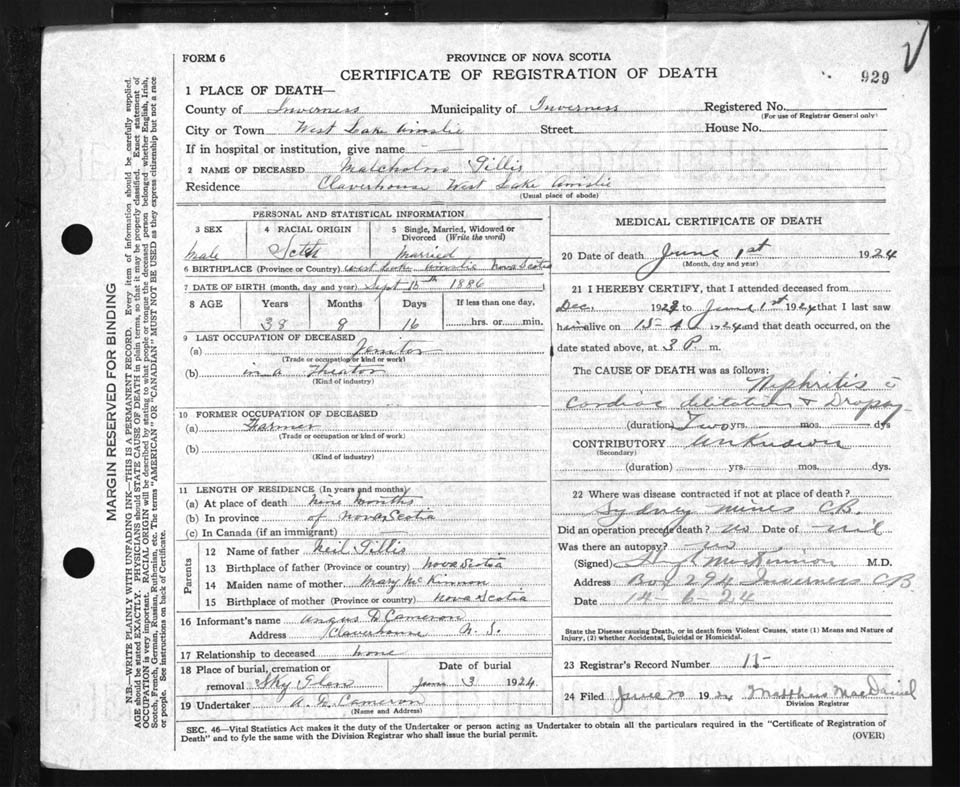 FORM 6
PROVINCE OF NOVA SCOTIA
CERTIFICATE OF REGISTRATION OF DEATH
929
1 PLACE OF DEATH—
County of Inverness Municipality of Inverness Registered No.
(For use of Registrar General only)
City or Town West Lake Ainslie Street House No.
If in hospital or institution, give name —
2 NAME OF DECEASED Malcholm Gillis
Residence Claverhouse West Lake Ainslie
(Usual place of abode)
PERSONAL AND STATISTICAL INFORMATION
3 SEX 4 RACIAL ORIGIN 5 Single, Married, Widowed or Divorced (Write the word)
Male Scotch Married
6 BIRTHPLACE (Province or Country) West Lake Ainslie Nova Scotia
7 DATE OF BIRTH (month, day and year) Sept 15th 1886
8 AGE Years Months Days If less than one day,
38 8 16 hrs. or min.
9 LAST OCCUPATION OF DECEASED
(a) Jenitor
(Trade or occupation or kind or work)
(b) in a Theator
(Kind of industry)
10 FORMER OCCUPATION OF DECEASED
(a) Farmer
(Trade or occupation or kind of work)
(b)
(Kind of industry)
11 LENGTH OF RESIDENCE (In years and months)
(a) At place of death Nine Months
(b) In province of Nova Scotia
(c) In Canada (if an immigrant)
Parents
12 Name of father Neil Gillis
13 Birthplace of father (Province or country) Nova Scotia
14 Maiden name of mother Mary McKinnon
15 Birthplace of mother (Province or country) Nova Scotia
16 Informant's name Angus D Cameron
Address Claverhouse N. S.
17 Relationship to deceased none
18 Place of burial, cremation or removal Sky Glen Date of burial June 3 1924
19 Undertaker A. D. Cameron
(Name and Address)
MEDICAL CERTIFICATE OF DEATH
20 Date of death June 1st 1924
(Month, day and year)
21 I HEREBY CERTIFY, that I attended deceased from
Dec, 1923 to June 1st 1924 that I last saw
him alive on 1924 and that death occurred, on the
date stated above, at 3 P. m.
The CAUSE OF DEATH was as follows:
Nephritis c̄
Cordiac dilitation & Dropsy
(duration) Two yrs. mos. dys
CONTRIBUTORY Unknown
(Secondary)
(duration) yrs. mos. dys.
22 Where was disease contracted if not at place of death?
Sydney Mines CB.
Did an operation precede death? no Date of nil
Was there an autopsy? no
(Signed) Hugh MacKinnon M.D.
Address Box 294 Inverness CB
Date 14-6-24
State the Disease causing Death, or in death from Violent Causes, state (1) Means and Nature of
Injury, (2) whether Accidental, Suicidal or Homicidal.
23 Registrar's Record Number 15
24 Filed June 20 1924 Matthew MacDaniel
Division Registrar
SEC. 46—Vital Statistics Act makes it the duty of the Undertaker or person acting as Undertaker to obtain all the particulars required in the "Certificate of Registration of
Death" and to fyle the same with the Division Registrar who shall issue the burial permit.
(OVER)
MARGIN RESERVED FOR BINDING
N.B.—WRITE PLAINLY WITH UNFADING INK—THIS IS A PERMANENT RECORD. Every item of information should be carefully supplied.
AGE should be stated EXACTLY. PHYSICIANS should STATE CAUSE OF DEATH in plain terms, so that it may be properly classified. Exact statement of
OCCUPATION is very important. RACIAL ORIGIN will be described by stating to what people or tongue the deceased person belonged whether English, Irish,
Scotch, French, German, Russian, Ruthenian, etc. The terms "AMERICAN" OR "CANADIAN" MUST NOT BE USED as they express citizenship but not a race
or people. See instructions on back of Certificate.